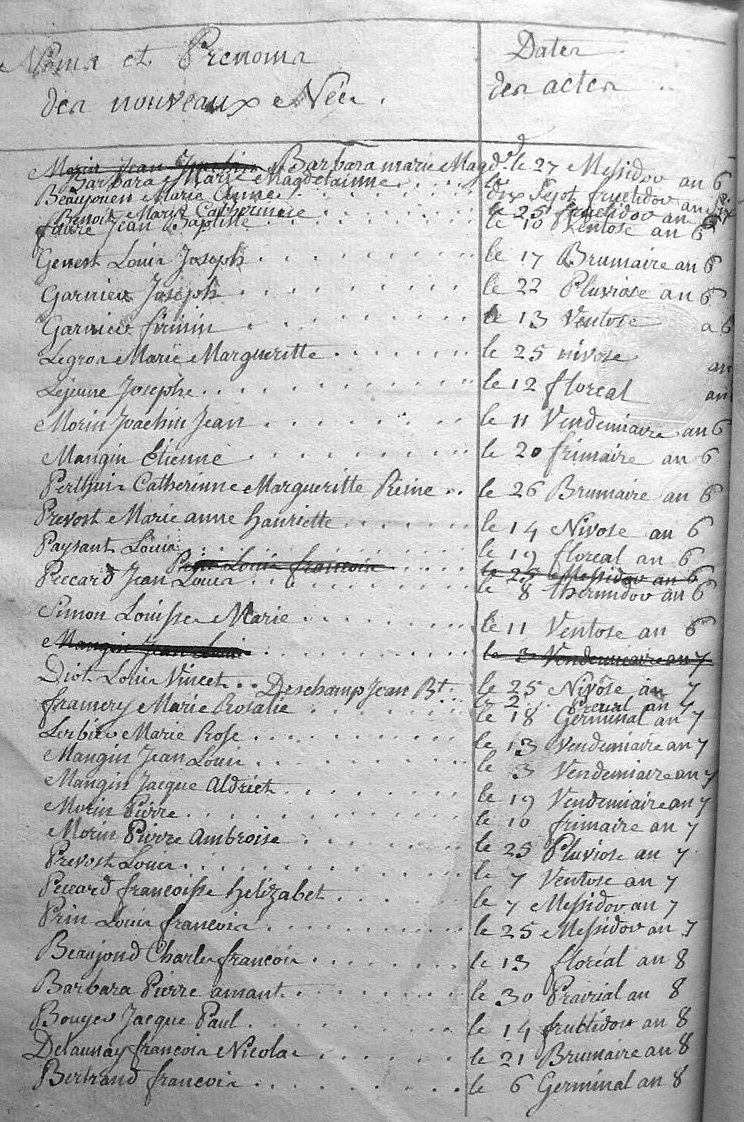 Noms et Prenoms Dates
des nouveaux Nées. des actes
Morin Jean Barbara marie Magd. le 27 Messidor an 6
Barbara Marie Magdelainne
Beaujouen Marie Anne dix Sept fructidor an Six
Benoit Marie Catherinne le 25 fructidor an 6
favre Jean Baptiste le 10 Ventose an 6
Genest Louis Joseph le 17 Brumaire an 6
Garnier Joseph le 22 Pluviose an 6
Garnier firmin le 13 Ventose a 6
Legros Marie Margueritte le 25 nivose an
Lejeune Josephe le 12 floreal an
Morin Joachin Jean le 11 Vendemiaire an 6
Mangin Etienne le 20 frimaire an 6
Perthuis Catherinne Margueritte Reine le 26 Brumaire an 6
Prevost Marie anne hanriette le 14 Nivose an 6
Paysant Louis le 19 floreal an 6
Prin Louis francois le 25 Messidor an 6
Peccard Jean Louis le 8 thermidor an 6
Simon Louisse Marie le 11 Ventose an 6
Mangin Jean Louis le 3 Vendemiaire an 7
Diot Louis Vincet le 25 Nivôse an 7
Deschamp Jean Bt. le 2 an 7
framery Marie Rosalie le 18 Germinal an 7
Lerbier Marie Rose le 13 Vendemiaire an 7
Mangin Jean Louis le 3 Vendemiaire an 7
Mangin Jacque Aldriet le 19 Vendemiaire an 7
Morin Pierre le 10 frimaire an 7
Morin Pierre Ambroise le 25 Pluviose an 7
Prevost Louis le 7 Ventose an 7
Peccard francoisse helizabet le 7 Messidor an 7
Prin Louis francois le 25 Messidor an 7
Beaujond Charles francois le 13 floréal an 8
Barbara Pierre amant le 30 Prairial an 8
Bouyer Jacque Paul le 14 fructidor an 8
Delaunay francois Nicolas le 21 Brumaire an 8
Bertrand francois le 6 Germinal an 8